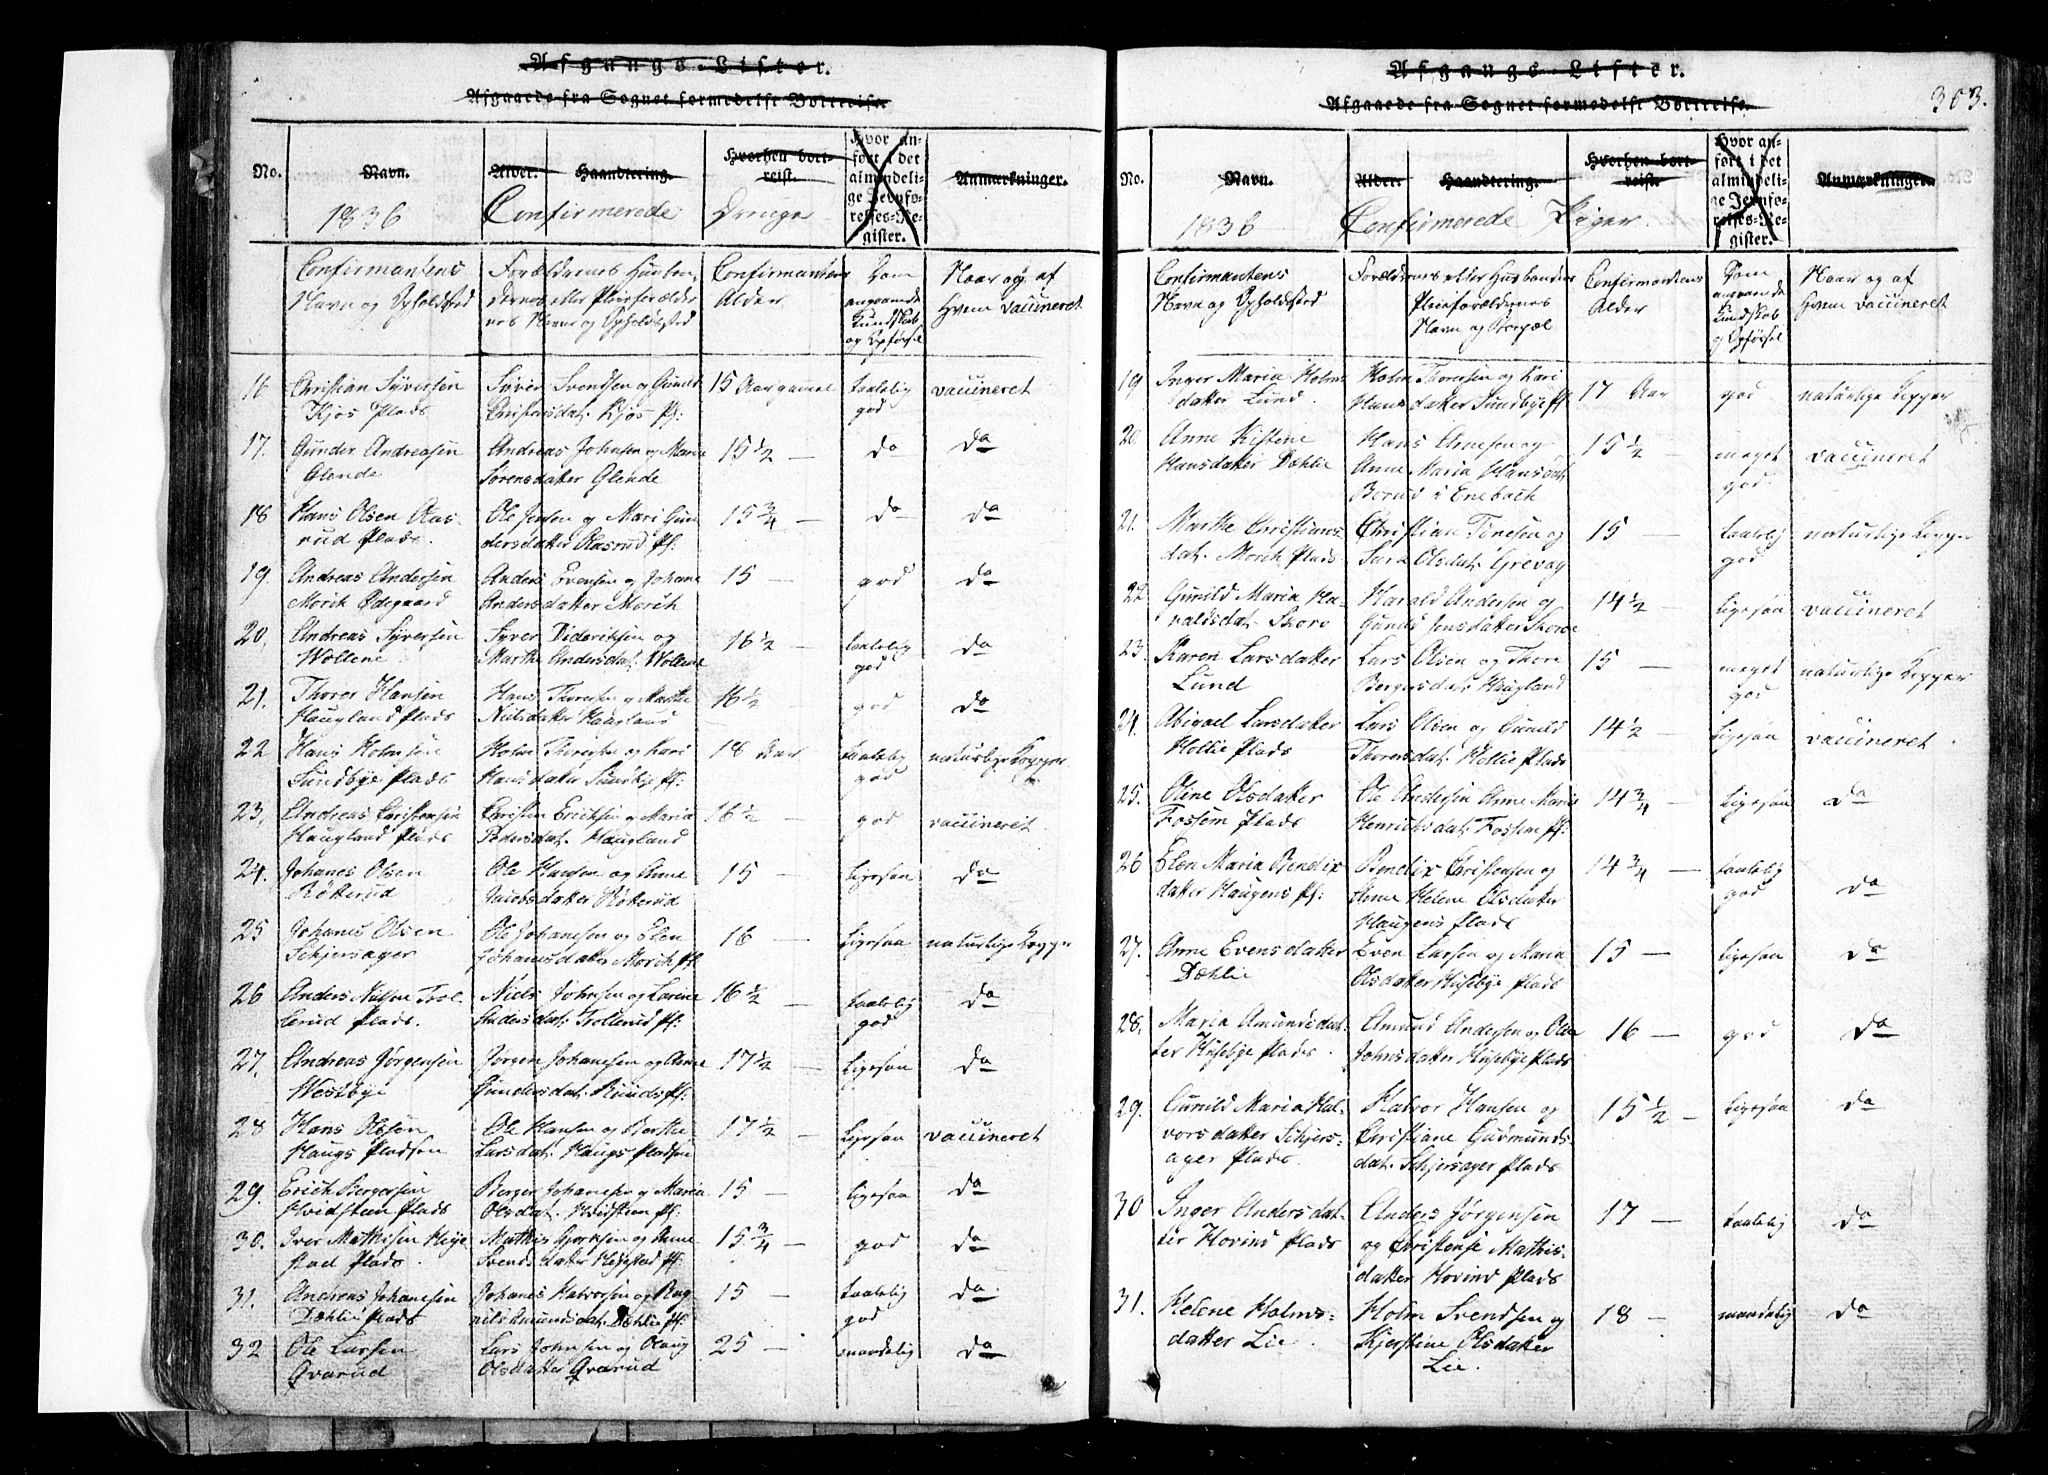 Afgangs-Lister.
Afgaaede fra Sognet formedelst Bortreise.
No. Navn. Alder. Haandtering. Hvorhen bortreist. Hvor anført i det almindelige Jevnførelses-Register. Anmærkninger.
1836 Confirmerede Drenge
Confirmantens Navn og Opholdsted
Forældrenes Huusbondernes eller Pleieforældrenes Navn og Opholdsted
Confirmantens Alder
Dom angaaende Kundskab og Opførsel
Naar og af Hvem vaccineret
16 Christian Syversen Kjos Plads
Syver Svendsen og Gunild Christensdat. Kjos Pl:
15 Aar gamel
taalelig god
vaccineret
17. Gunder Andreasen Glende
Andreas Johnsen og Marie Sørensdatter Glende
15 1/2 —
do
do
18 Hans Olsen Aasrud Plads.
Ole Jensen og Mari Gundersdatter Aasrud Pl:
15 3/4 —
do
do
19. Andreas Andersen Morth Ødegaard
Anders Evensen og Johane Andersdatter Morth
15 —
god
do
20. Andreas Syversen Wollene
Syver Dideriksen og Marthe Andersdat. Wollene
16 1/2 —
taalelig god
do
21. Thorer Hansen Haugland Plads
Hans Thoresen og Marthe Nielsdatter Haagland
16 1/2 —
god
do
22 Hans Holmsen Sundbye Plads
Holm Thoresen og Kari Hansdatter Sundbye Pl:
18 Aar
taalelig god
naturlige Kopper
23, Andreas Christensen Haugland Plads
Christen Eriksen og Maria Pedersdat. Haugland
16 1/2 —
god
vaccineret
24. Johanes Olsen Røtterud
Ole Hansen og Anne Jacobsdatter Røtterud
15 —
Ligesaa
do
25 Johanes Olsen Schjersager
Ole Johanesen og Elen Johanesdatter Morth Pl
16 —
Ligesaa
naturlige Kopper
26 Anders Nilsen Trollerud Plads.
Niels Johnsen og Karine Andersdat. Trollerud Pl:
16 1/2 —
taalelig god
do
27. Andreas Jørgensen Westbye
Jørgen Johansen og Anne Gundersdat. Ruuds Pl:
17 1/2 —
Ligesaa
do
28 Hans Olsen Haugs Pladsen
Ole Hansen og Berthe Larsdat. Haugs Pladsen
17 1/2 —
Ligesaa
vaccineret
29. Erich Bergersen Hvidsteen Plads
Berger Johanesen og Maria Olsdat. Hvidsteen Pl:
15 —
ligesaa
do
30. Iver Mathisen Heyestad Plads.
Mathis Gjorksen og Anne Svendsdatter Heyestad Pl:
15 3/4 —
god
do
31. Andreas Johanesen Dæhlie Plads
Johanes Halvorsen og Ragnild Amundsdat. Dæhlie Pl:
15 —
taalelig god
do.
32 Ole Larsen Qvarud
Lars Johnsen og Olaug Olsdatter Qvarud
25 —
maadelig
do
303.
Afgangs-Lister.
Afgaaede fra Sognet formedelst Bortreise.
No. Navn. Alder. Haandtering. Hvorhen bortreist. Hvor anført i det almindelige Jevnførelses-Register. Anmærkninger.
1836 Confirmerede Piger.
Confirmantens Navn og Opholdsted
Forældrenes eller Husbondens Pleieforældrenes Navn og Boepæl
Confirmantens Alder
Dom angaaende Kundskab og Opførsel
Naar og af Hvem vaccineret
19 Inger Maria Holmsdatter Lund.
Holm Thoresen og Kari Hansdatter Sundbye Pl
17 Aar
god
naturlige Kopper
20. Anne Kistine Hansdatter Dæhlie
Hans Arnesen og Anne Maria Hansdat. Borud i Enebach
15 1/2 —
meget god
vaccineret
21. Marthe Christiansdat. Morth Plads
Christian Tønesen og Sara Olsdat. Grevag
15 —
taalelig god
naturlige Kopper
22 Gunild Maria Haraldsdat. Thoro
Harald Andersen og Gunild Jensdatter Thoroe
14 1/2 —
Ligesaa
vaccineret
23. Karen Larsdatter Lund
Lars Olsen og Thore Bergersdat. Haugland
15 —
meget god
naturlige Kopper
24. Abigael Larsdatter Hollie Plads
Lars Olsen og Gunild Thoresdat. Hollie Plads
14 1/2 —
Ligesaa
vaccineret.
25. Oline Olsdatter Fossum Plads
Ole Andersen Anne Marie Henrichsdat. Fossum Pl:
14 3/4 —
Ligesaa
do
26 Elen Maria Bendixdatter Haugens Pl:
Bendix Christensen og Anne Helene Olsdatter Haugens Plads
14 3/4 —
taalelig god
do
27. Anne Evensdatter Dæhlie
Even Larsen og Maria Olsdatter Husebye Plads
15 —
Ligesaa
do
28. Maria Amundsdatter Husebye Plads.
Amund Andersen og Olea Johnsdatter Husebye Plads
16 —
god
do
29. Gunild Maria Halvorsdatter Schjersager Plads.
Halvor Hansen og Christiane Gudmundsdat. Schjersager Plads
15 1/2 —
Ligesaa
do
30 Inger Andersdatter Hovind Plads
Anders Jørgensen og Christense Mathisdatter Hovind Plads
17 —
taalelig
do
31. Helene Holmsdatter Lie.
Holm Svendsen og Kjerstine Olsdatter Lie.
18 —
maadelig
do